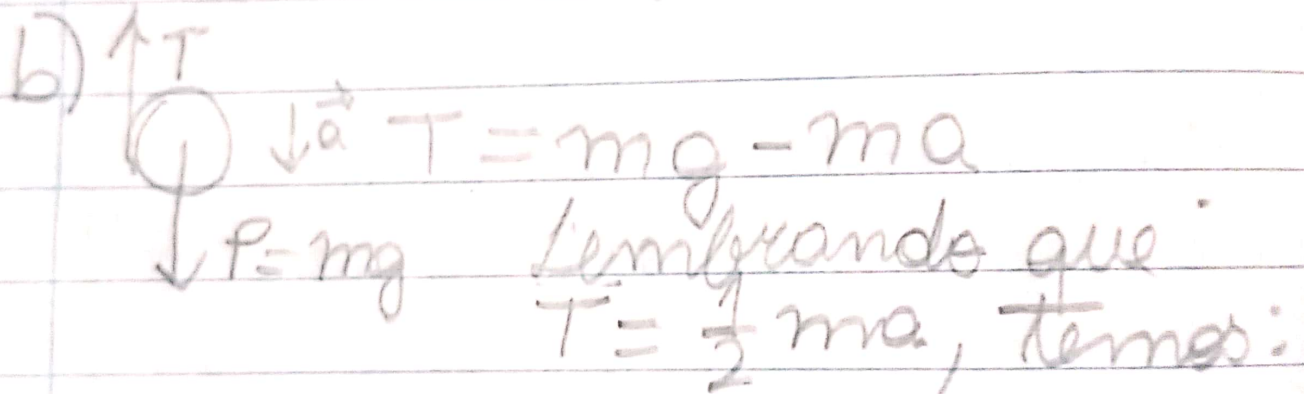 b) T
a⃗ T = mg - ma
P = mg Lembrando que
T = 1/2 ma, temos: